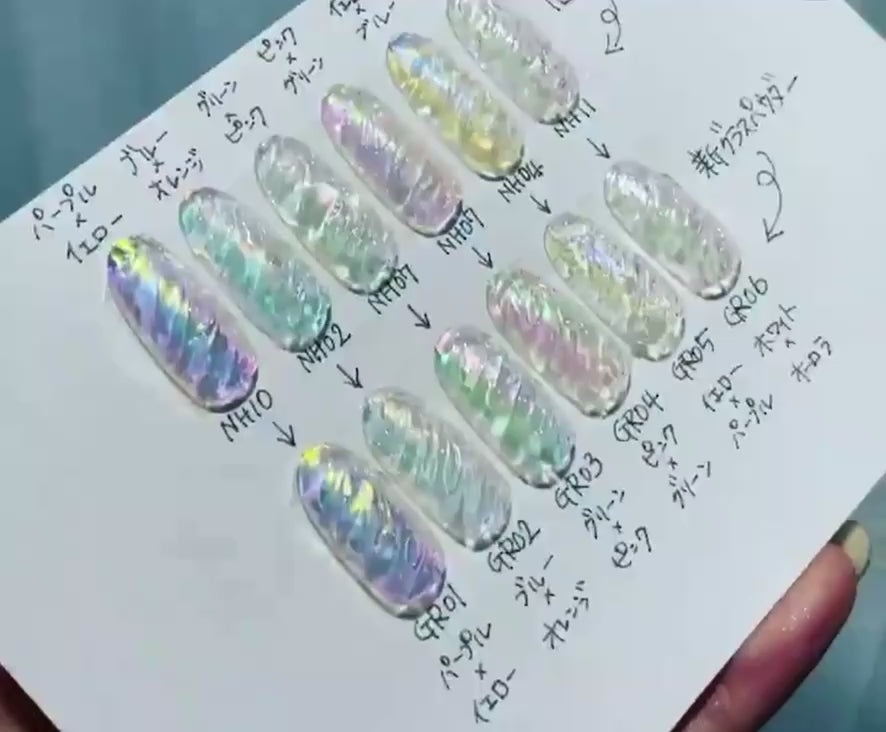 パープル
×
イエロー
ブルー
×
オレンジ
グリーン
ピンク
ピンク
×
グリーン
イエロー
×
ブルー
NH10
NH02
NH07
NH07
NH04
NH11
新グラスパウダー
GR01
GR02
GR03
GR04
GR05
GR06
パープル
×
イエロー
ブルー
×
オレンジ
グリーン
×
ピンク
ピンク
×
グリーン
イエロー
×
パープル
ホワイト
×
オーロラ